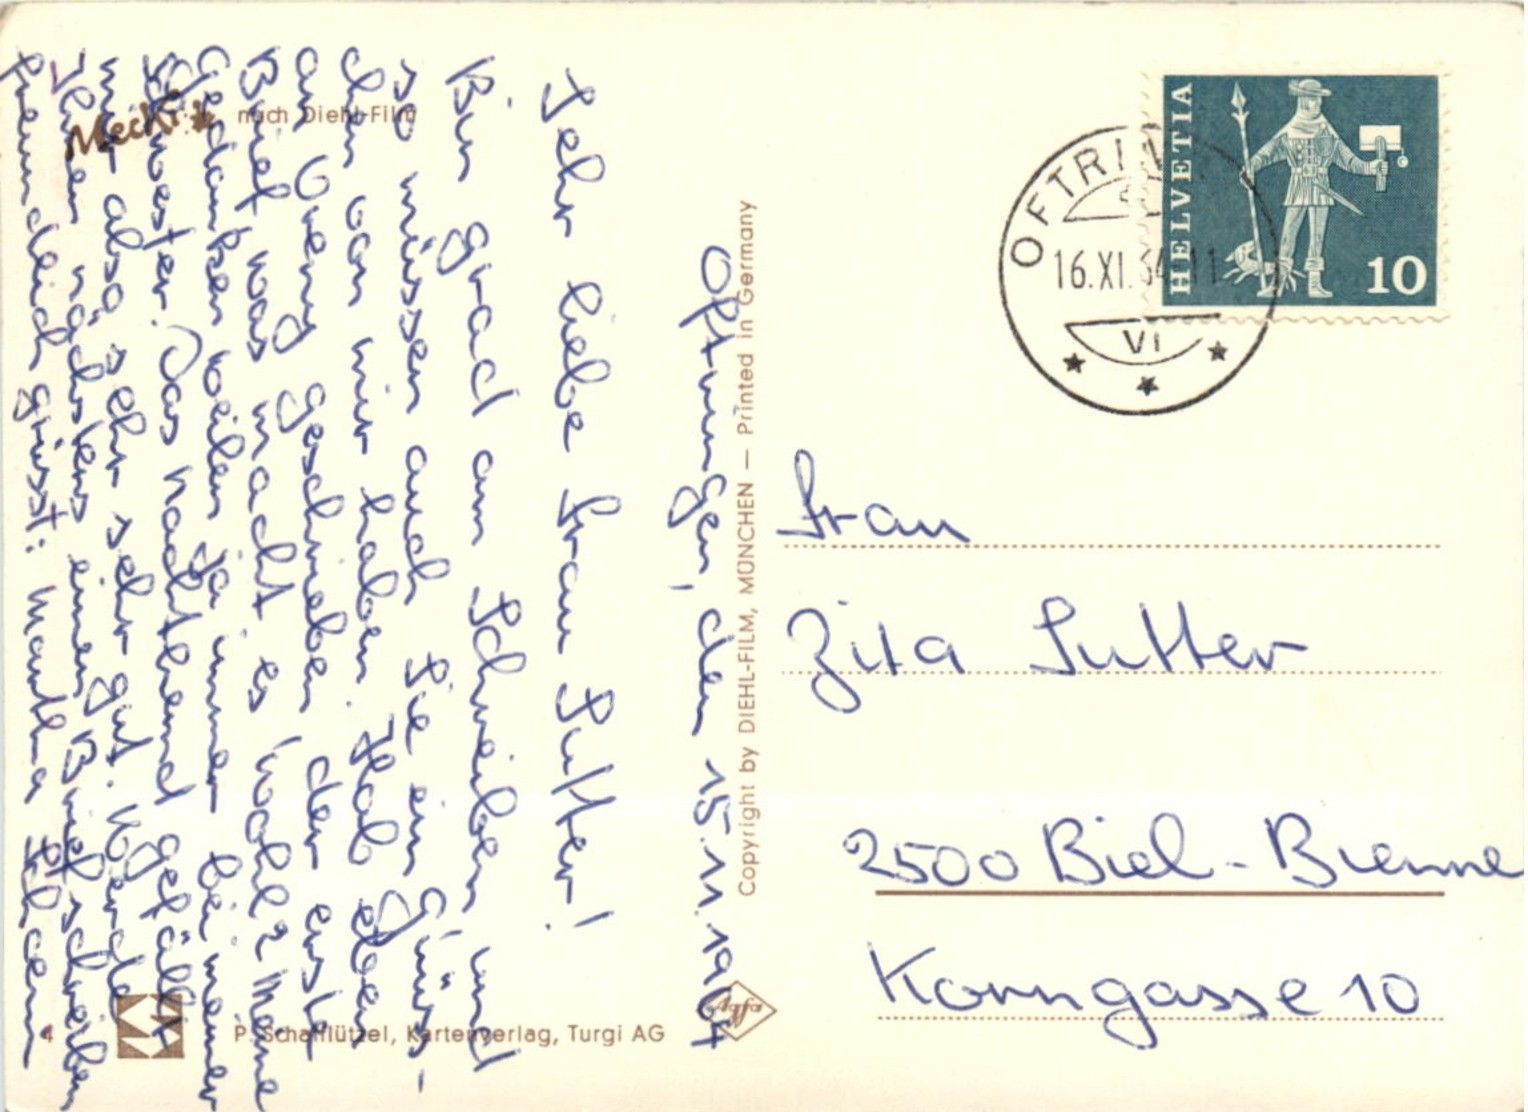 Oftringen, den 15.11.1964
Sehr liebe Frau Sutter!
Bin grad am Schreiben und
so müssen auch Sie ein Grüss-
chen von mir haben. Hab eben
an Vreny geschrieben, der erste
Brief was macht es wohl? Meine
Gedanken weilen ja immer bei meiner
Schwester. Das Nachthemd gefällt
mir also sehr sehr gut. Werde
Ihnen nächstens einen Brief schreiben
freundlich grüsst: Martha
Mecki nach Diehl-Film
4
P. Schafflützel, Kartenverlag, Turgi AG
Agfa
Copyright by DIEHL-FILM, MÜNCHEN — Printed in Germany
HELVETIA
10
OFTRIN
16.XI.64-11
VI
Frau
Zita Sutter
2500 Biel-Bienne
Korngasse 10